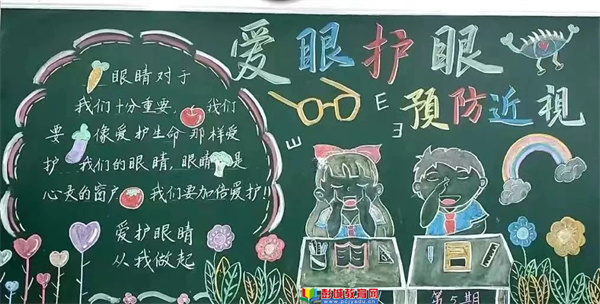 爱眼护眼
预防近視
眼睛对于
我们十分重要,我们
要像爱护生命那样爱
护我们的眼睛,眼睛是
心灵的窗户,我们要加倍爱护!!
爱护眼睛
从我做起
E
E
E
第5期
彭城教育网
www.pcjyedu.cn